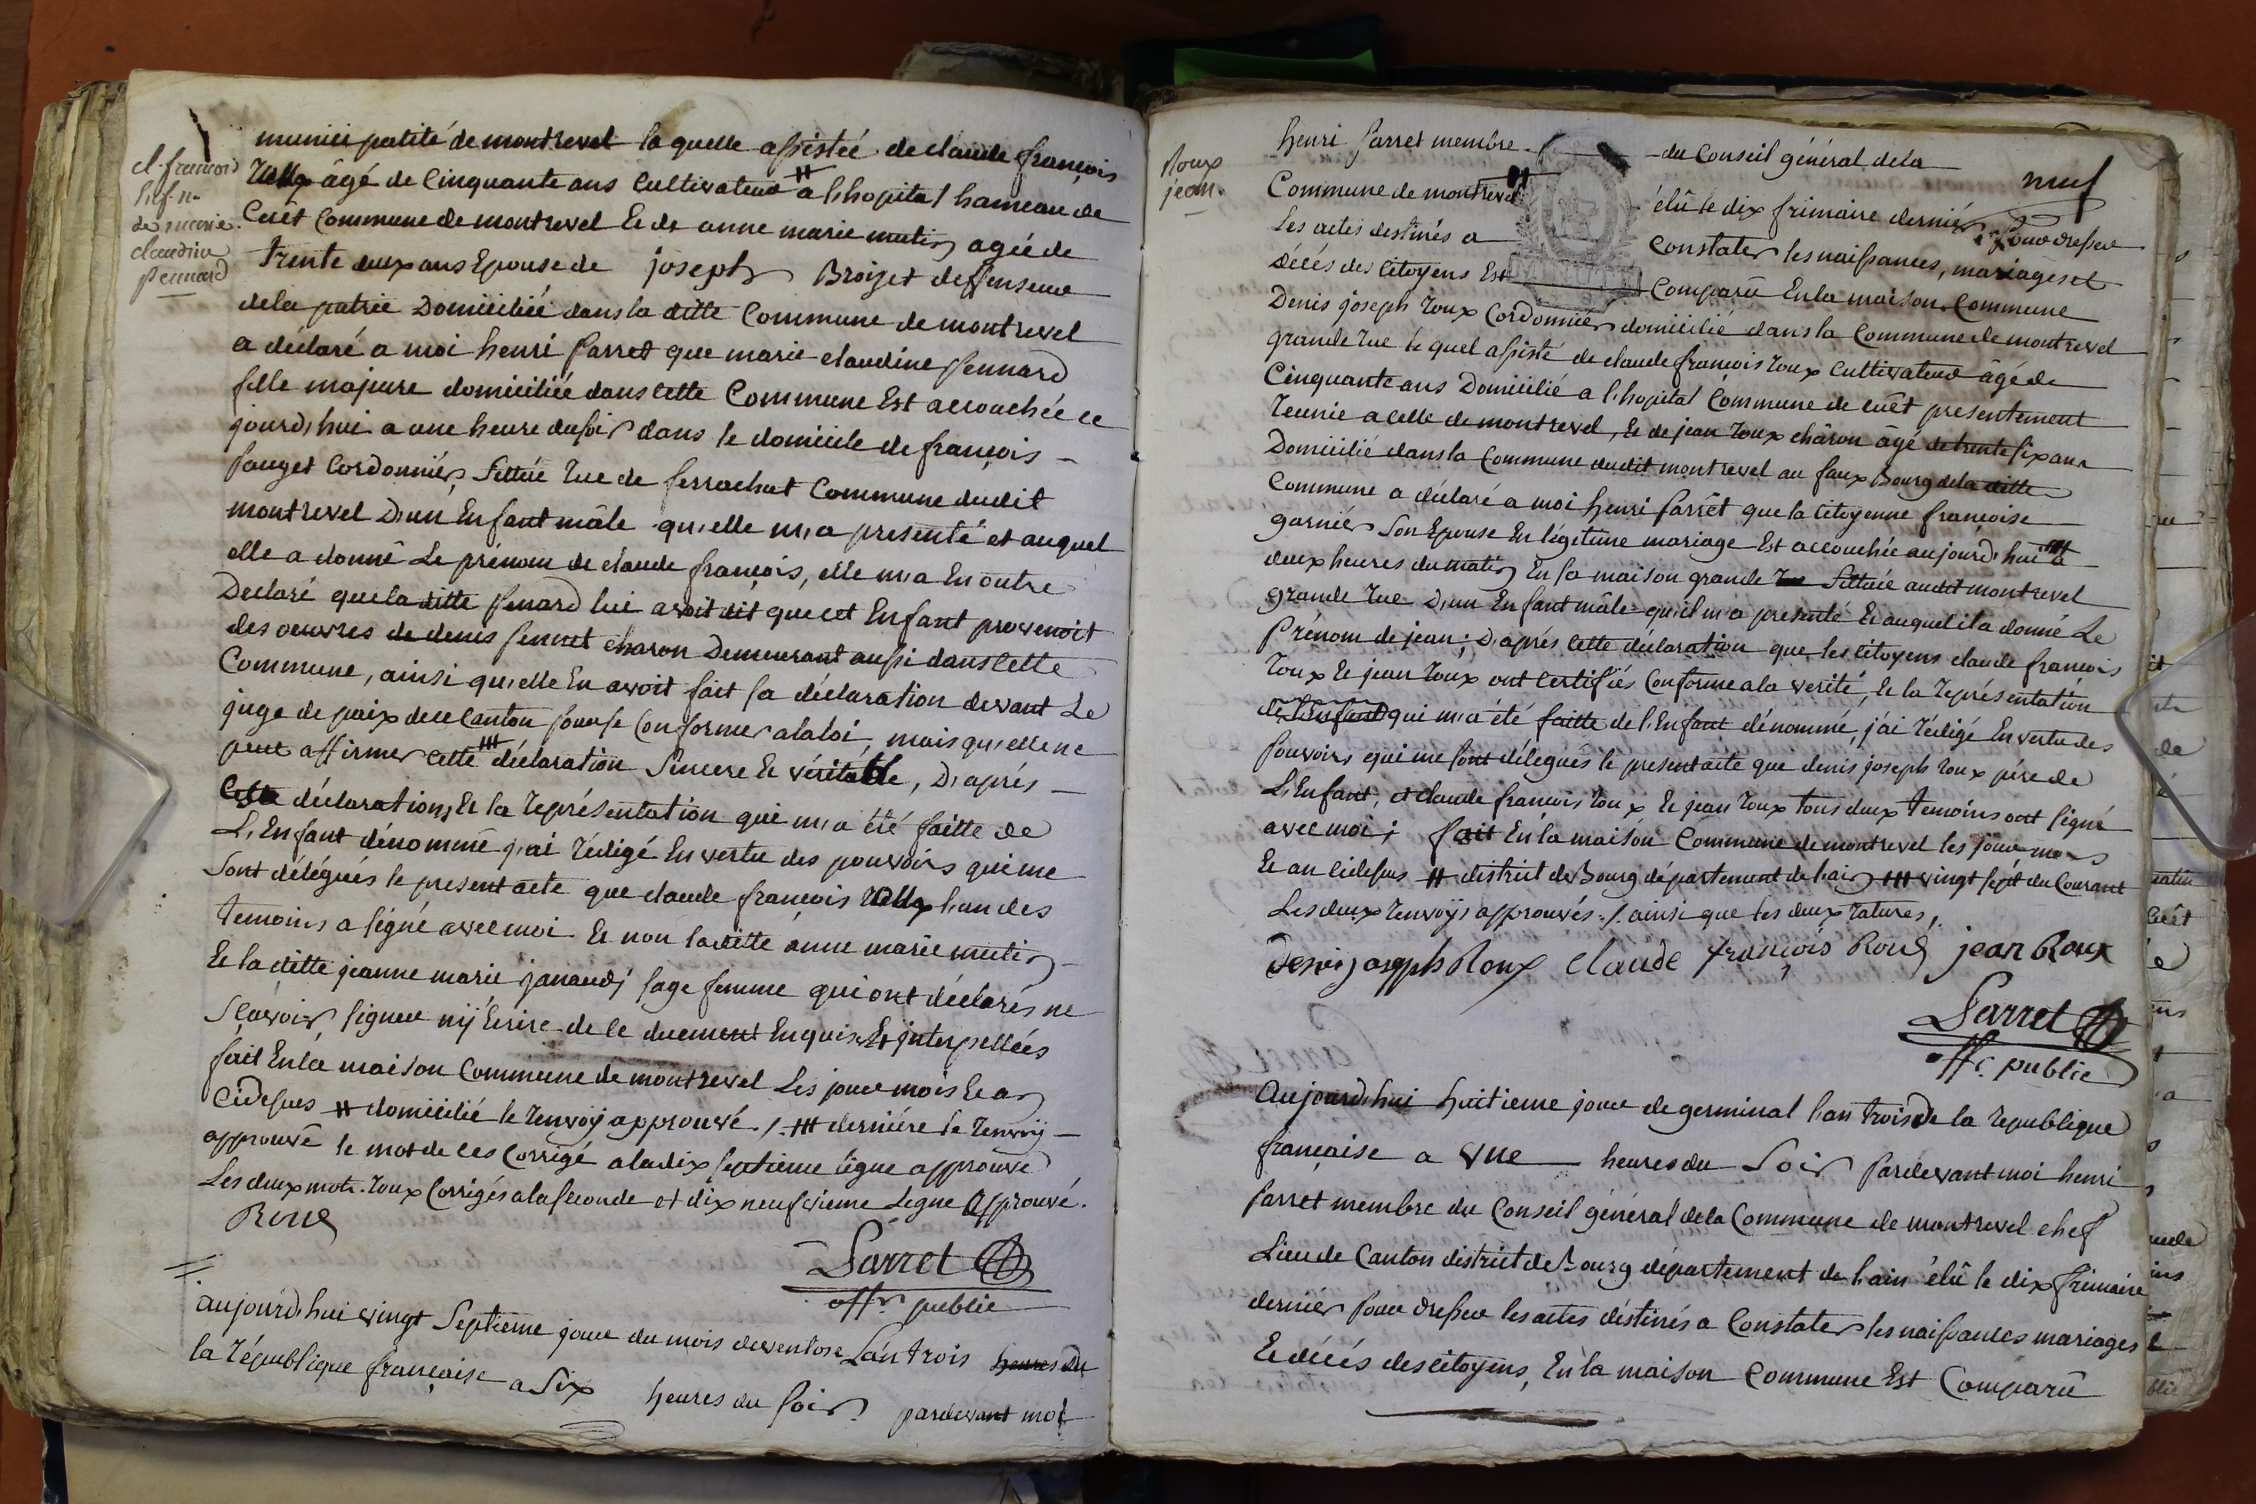 cl. françois
de marie
claudine
pennard
municipalité de montrevel la quelle assistée de claude françois
Roux âgé de Cinquante ans Cultivateur # a l'hopital hameau de
Cuêt Commune de montrevel Et de anne marie mutin agée de
trente deux ans Epouse de joseph Broijet deffenseur
de la patrie Domiciliée dans la ditte Commune de montrevel
a déclaré a moi henri parret que marie claudine pennard
fille majeure domiciliée dans cette Commune Est accouchée ce
jourd'hui a une heure du soir dans le domicile de françois
pauget Cordonnier, Sittuée Rue de ferrachat Commune dudit
montrevel D'un Enfant mâle qu'elle m'a presenté et auquel
elle a donné Le prénom de claude françois, elle m'a En outre
Declaré que la ditte penard lui avoit dit que cet Enfant provenoit
des oeuvres de denis pennet charon Demeurant aussi dans cette
Commune, ainsi qu'elle En avoit fait sa déclaration devant Le
juge de paix de ce Canton pour se Conformer a la loi, mais qu'elle ne
peut affirmer cette ### déclaration Sincere Et véritable, D'après
Cette déclaration, Et la Représentation qui m'a été faitte de
L'Enfant dénommé j'ai Rédigé En vertu des pouvoirs qui me
Sont délégués le present acte que claude françois Roux l'un des
temoins a signé avec moi Et non la ditte anne marie mutin
Et la ditte jeanne marie janaudj sage femme qui ont déclarés ne
Sçavoir signer nij Ecrire de ce duement Enquises Et jnterpellées
fait En la maison Commune de montrevel Les jour mois Et an
Cidessus # domicilié le Renvoij approuvé ./. ### derniére le Renvoij
approuvé le mot de ces Corrigé a la dix septieme ligne approuvé
Les deux mots Roux Corrigés a la seconde et dix neufvieme Legne Approuvé.
Roux
Parret
offr public
aujourd'hui vingt Septieme jour du mois de ventose L'an trois heures du
la République française a Six heures du soir pardevant moi
Roux
jean.
neuf
henri parret membre du Conseil général de la
Commune de montrevel # élû le dix frimaire dernier, pour dresser
Les actes destinés a Constater les naissances, mariages et
Décés des Citoyens Est Comparû En la maison Commune
Denis joseph Roux Cordonnier domicilié dans la Commune de montrevel
grande Rue le quel assisté de claude françois Roux Cultivateur âgé de
Cinquante ans Domicilié a l'hopital Commune de cuêt presentement
Reunie a celle de montrevel, Et de jean Roux châron âgé de trente six ans
Domicilié dans la Commune dudit montrevel au faux Bourg de la ditte
Commune a déclaré a moi henri parrêt que la Citoyenne françoise
garnier Son Epouse En légitime mariage Est accouchée aujourd'hui ### a
deux heures du matin En sa maison grande Rue Sittuée audit montrevel
grande Rue D'un Enfant mâle qu'il m'a presenté Et auquel il a donné Le
Prénom de jean; D'aprés cette déclaration que les Citoyens claude françois
Roux Et jean Roux ont certifiés Conforme a la verité, Et la Représentation
de L'Enfant qui m'a été faitte de l'Enfant dénommé, j'ai Rédigé En vertu des
pouvoirs qui me sont délegués le present acte que denis joseph Roux pére de
L'Enfant, et claude françois Roux Et jean Roux tous deux temoins ont signé
avec moi; fait En la maison Commune de montrevel les jour mois
Et an cidessus # district de Bourg département de l'ain ### vingt sept du Courant
Les deux Renvoijs approuvés ./. ainsi que les deux Ratures,
Denis joseph Roux Claude françois Roux jean Roux
Parret
offr. public
Aujourd'hui huitieme jour de germinal l'an trois de la Republique
française a une heures du Soir pardevant moi henri
parret membre du Conseil général de la Commune de montrevel chef
Lieu de Canton district de Bourg département de l'ain élû le dix frimaire
dernier pour dresser les actes déstinés a Constater les naissances mariages
Et décés des citoyens, En la maison Commune Est Comparû